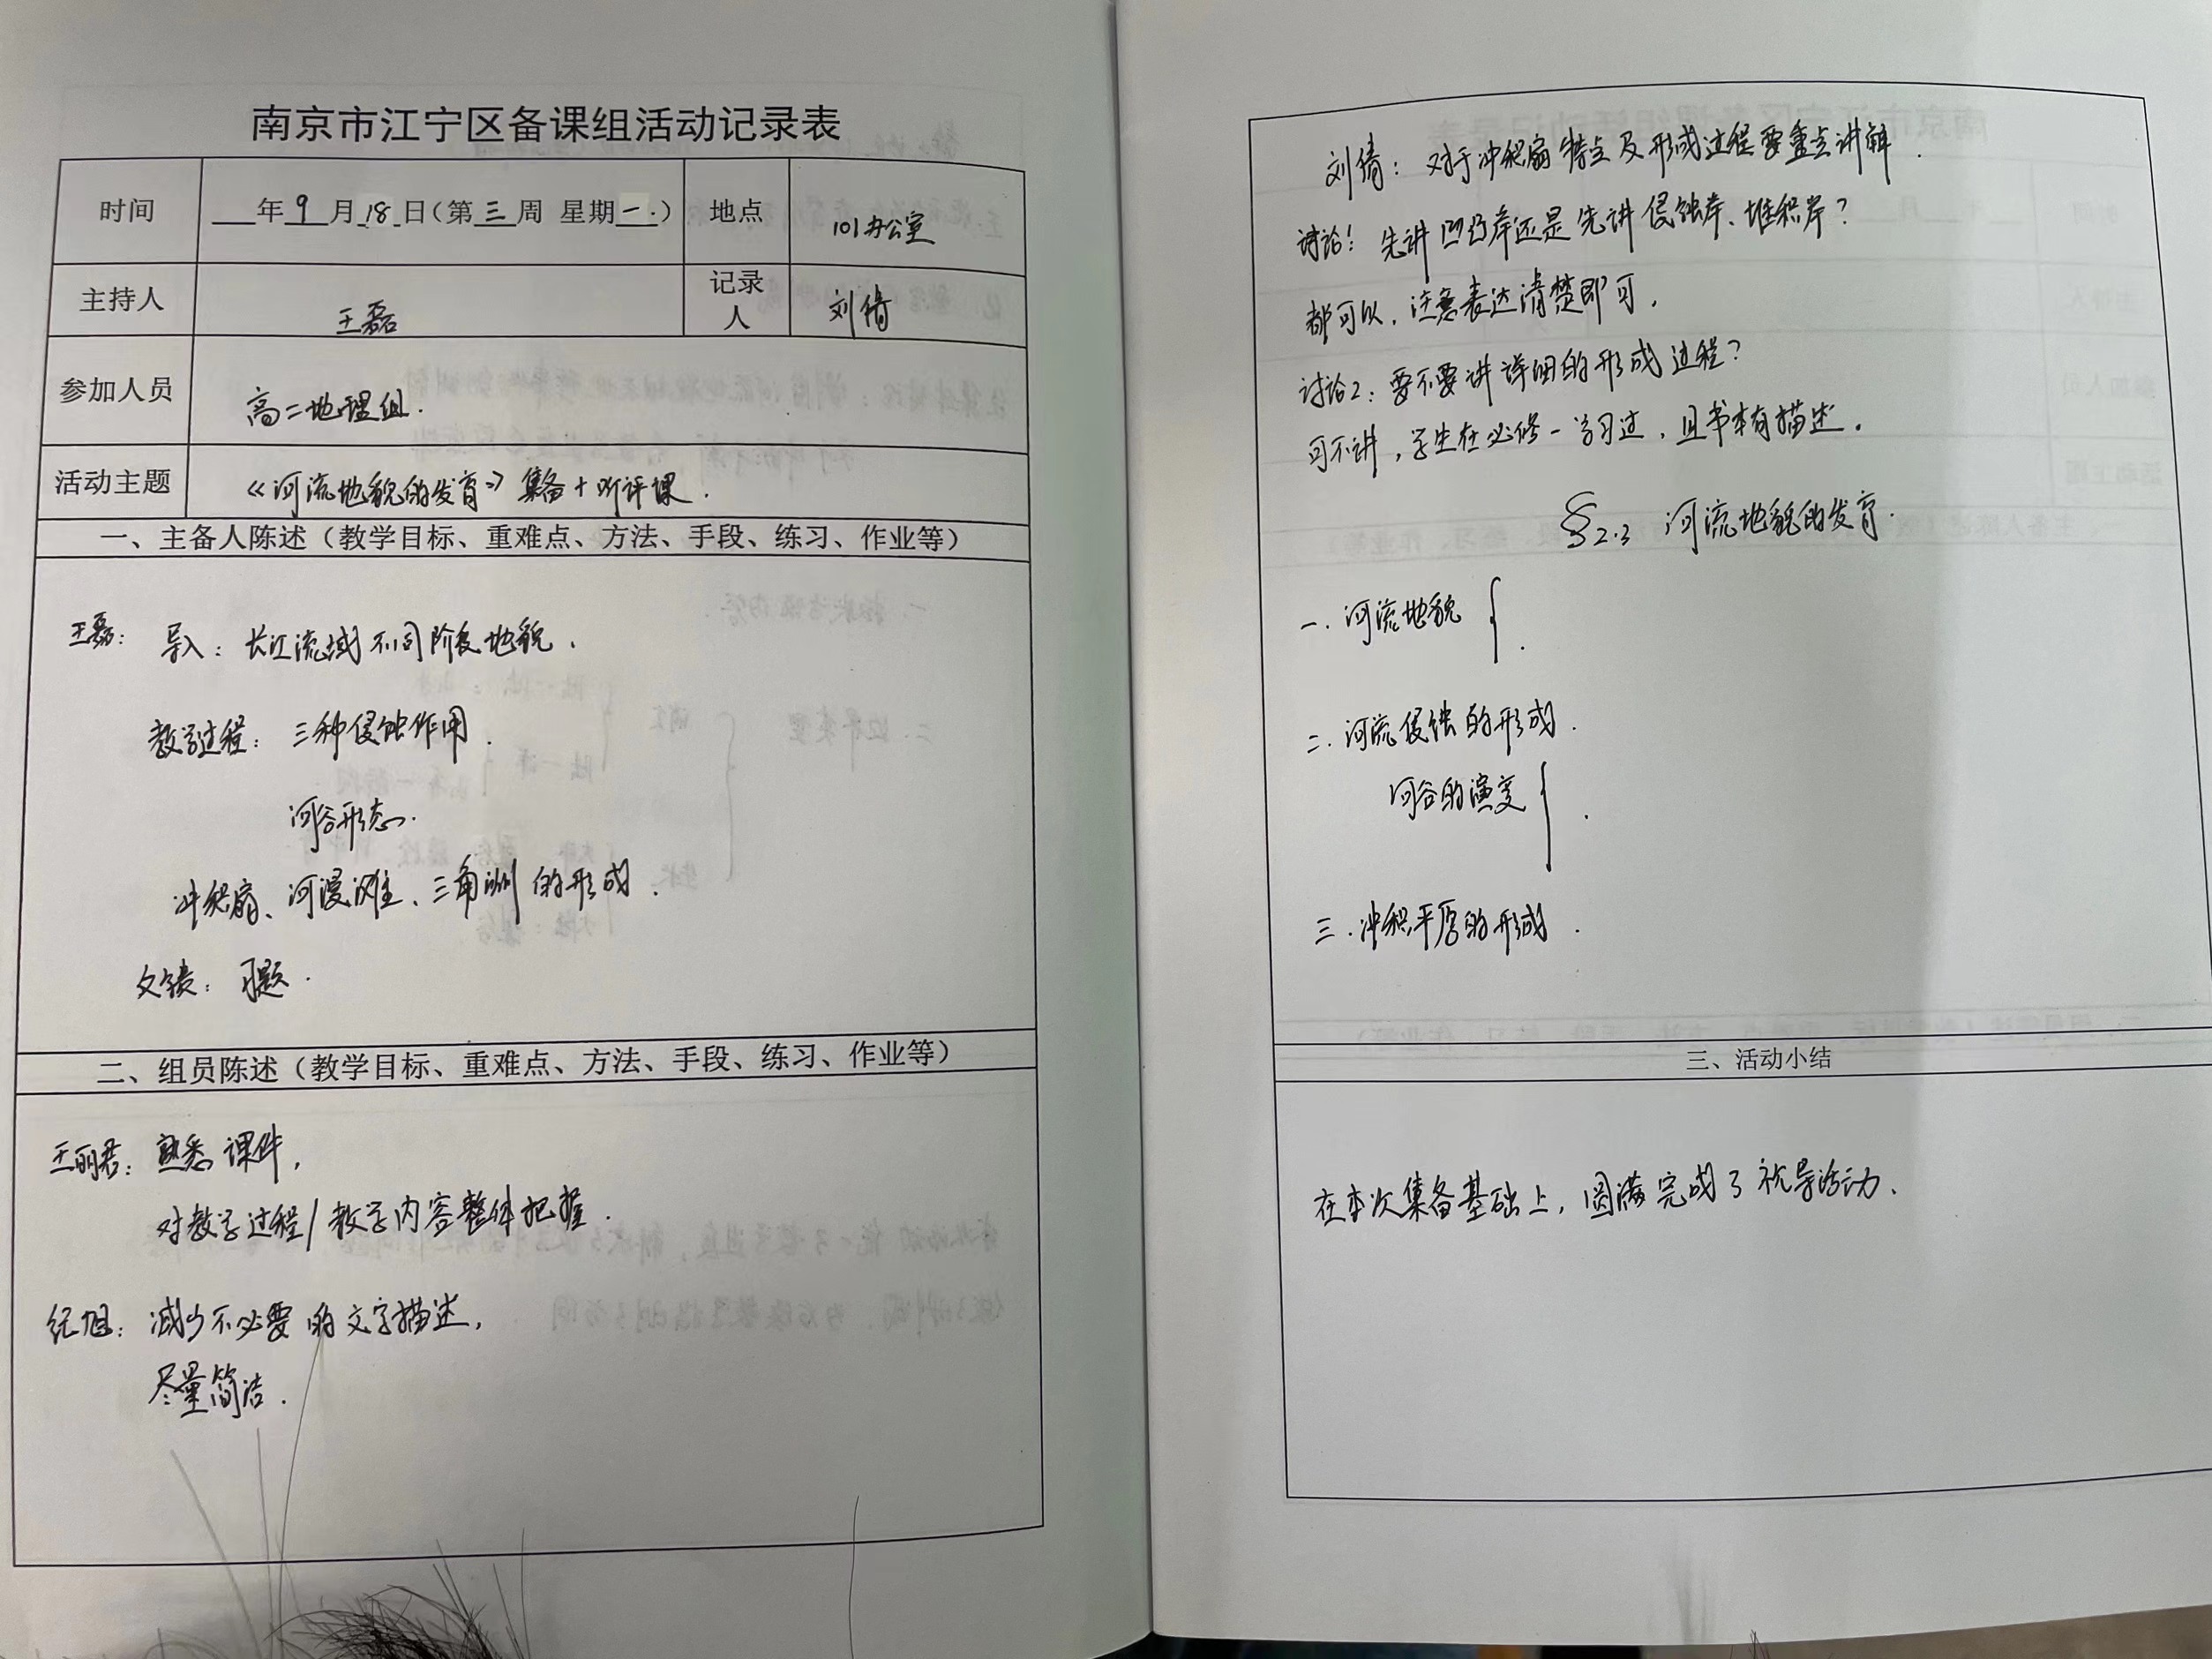 南京市江宁区备课组活动记录表
时间 年 9 月 18 日（第 三 周 星期 一 ） 地点 101办公室
主持人 王磊 记录人 刘倩
参加人员 高二地理组.
活动主题 《河流地貌的发育》集备+听评课.
一、主备人陈述（教学目标、重难点、方法、手段、练习、作业等）
王磊： 导入：长江流域不同阶段地貌.
教学过程：三种侵蚀作用.
河谷形态.
冲积扇、河漫滩、三角洲的形成.
反馈：习题.
二、组员陈述（教学目标、重难点、方法、手段、练习、作业等）
王丽君：熟悉课件，
对教学过程/教学内容整体把握.
纪旭：减少不必要的文字描述，
尽量简洁.
刘倩：对于冲积扇特点及形成过程要重点讲解.
讨论1：先讲凹凸岸还是先讲侵蚀岸、堆积岸？
都可以，注意表达清楚即可.
讨论2：要不要讲详细的形成过程？
可不讲，学生在必修一学习过，且书本有描述.
§2.3 河流地貌的发育.
一.河流地貌 {
二.河流侵蚀的形成.
河谷的演变 {
三.冲积平原的形成.
三、活动小结
在本次集备基础上，圆满完成了视导活动.